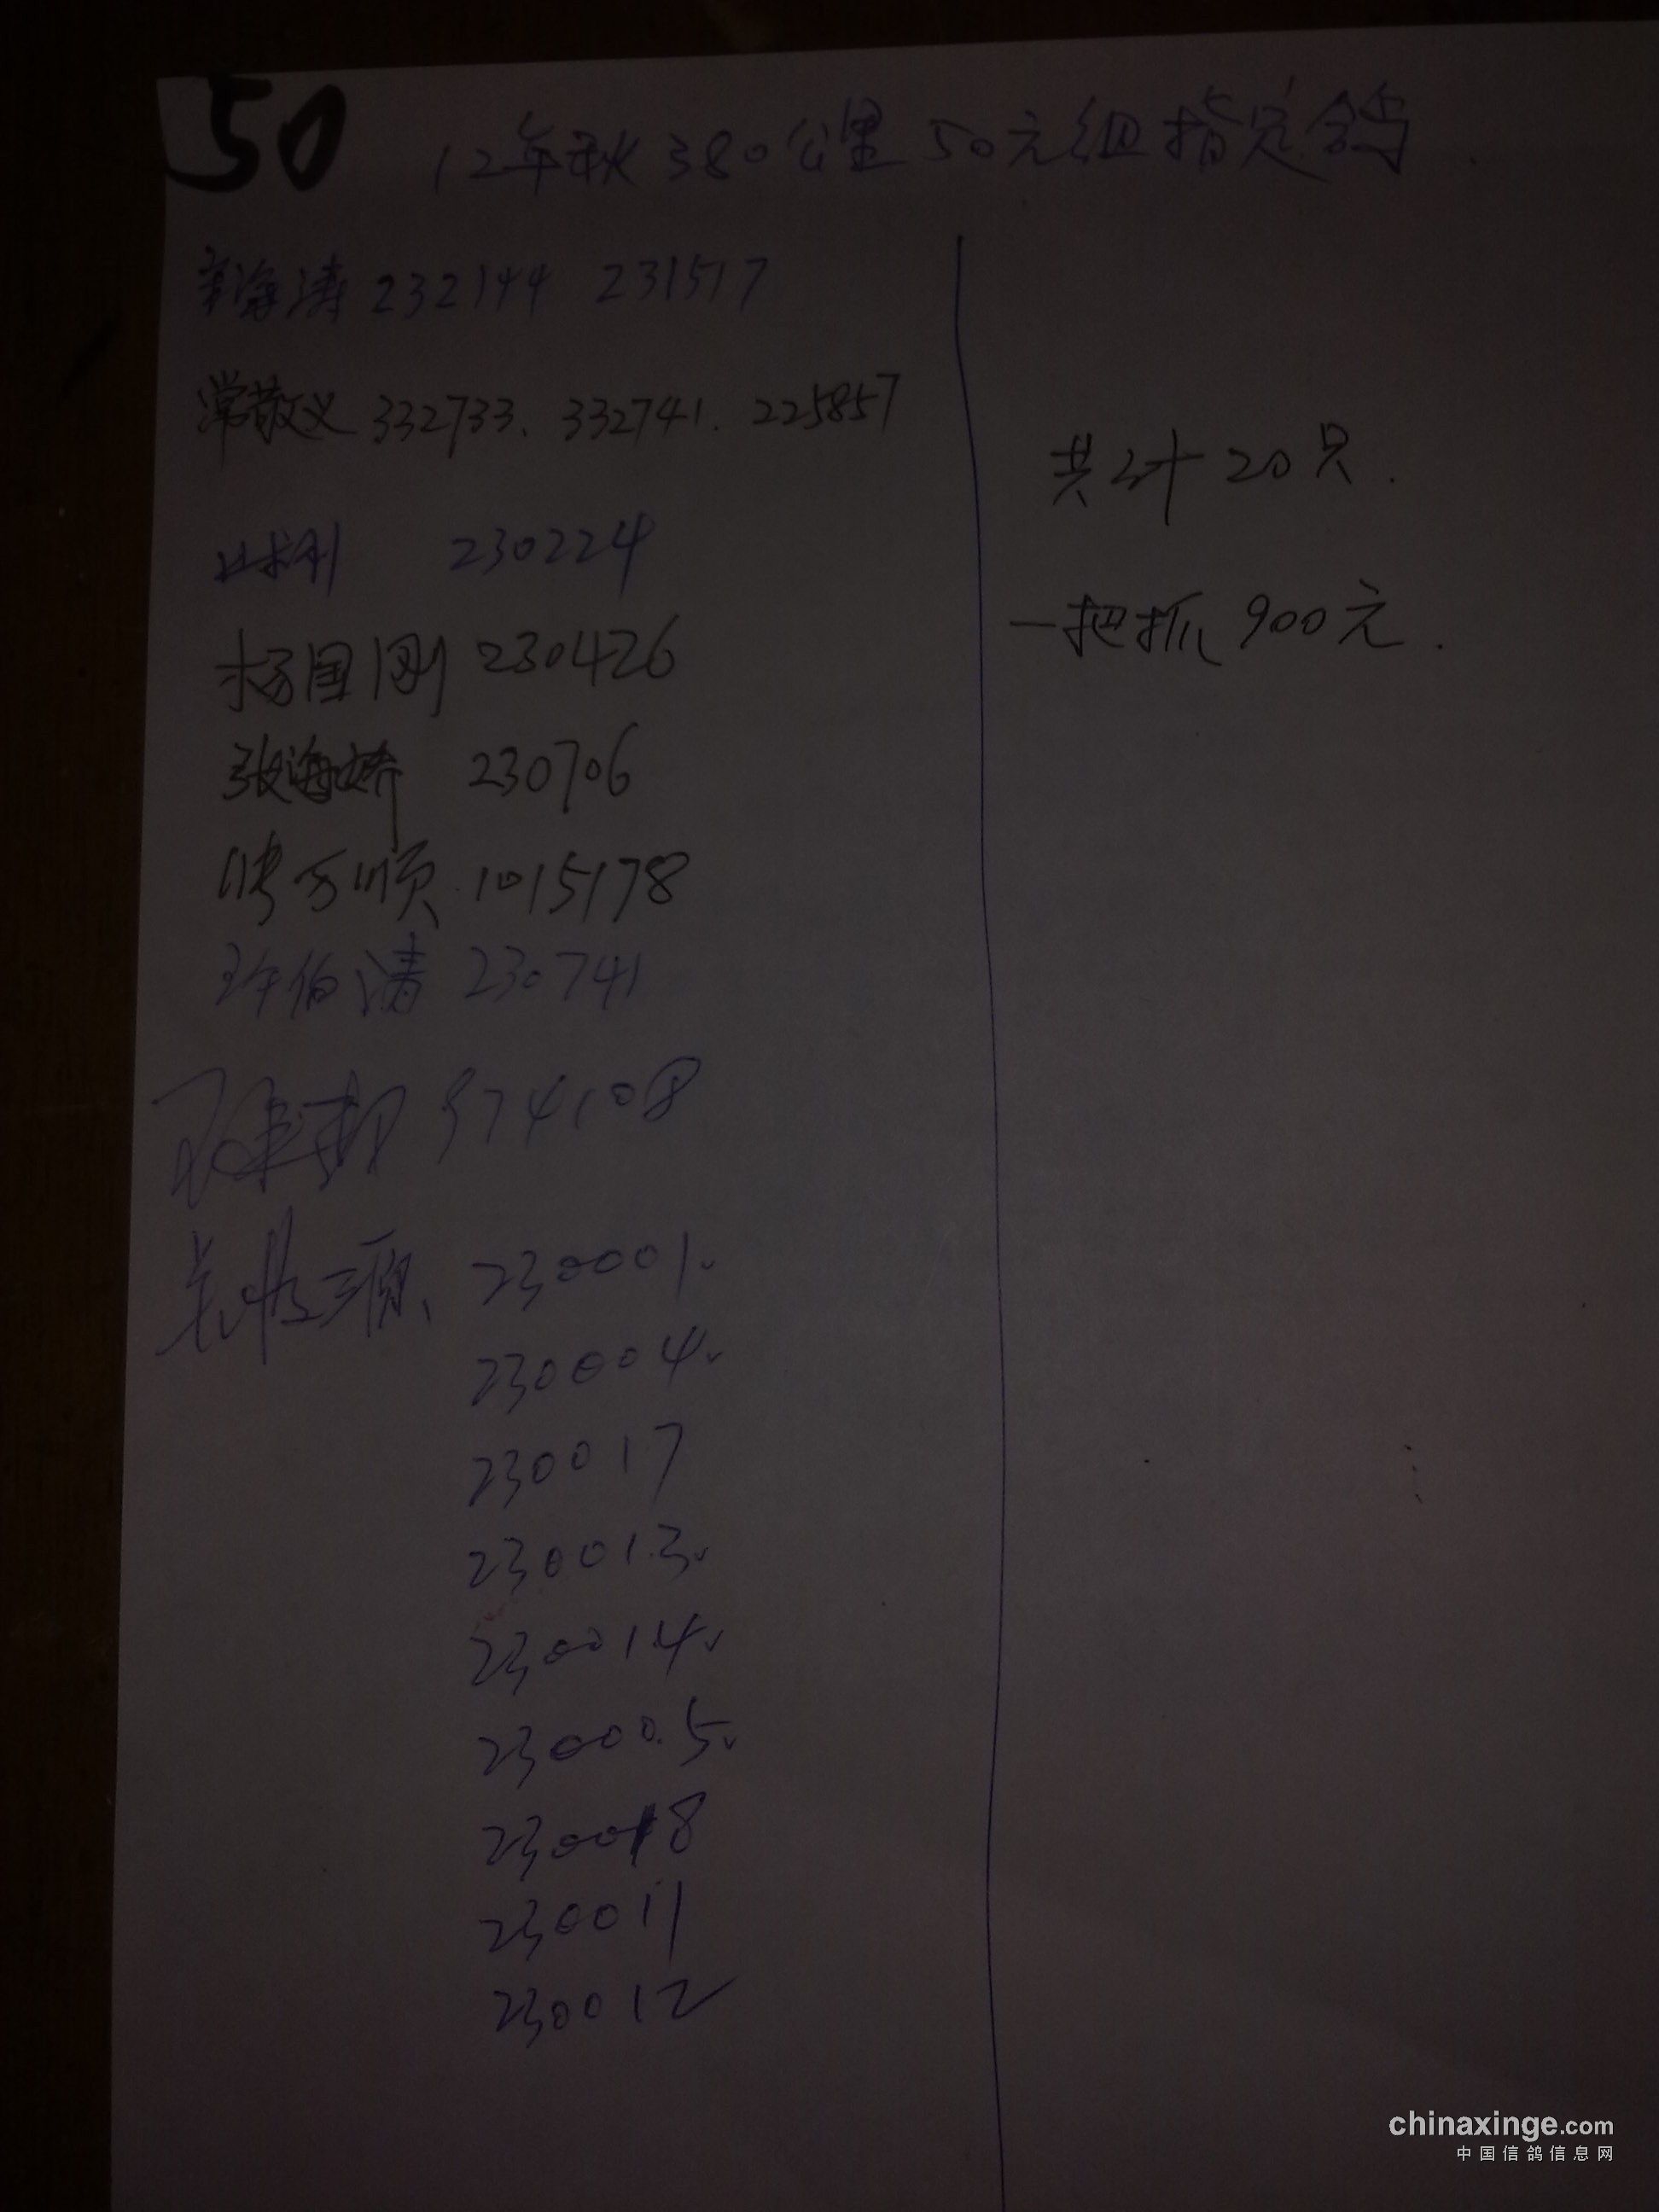 50
12年秋380公里50元组指定鸽
海涛 232144 231517
常敬义 332733. 332741. 225857
刚 230224
杨国刚 230426
张海娇 230706
万顺 1015178
许伯涛 230741
574108
230001.
230004.
230017
230013.
230014.
230005.
230018
230011
230012
共计20只.
一把抓900元.
chinaxinge.com
中国信鸽信息网